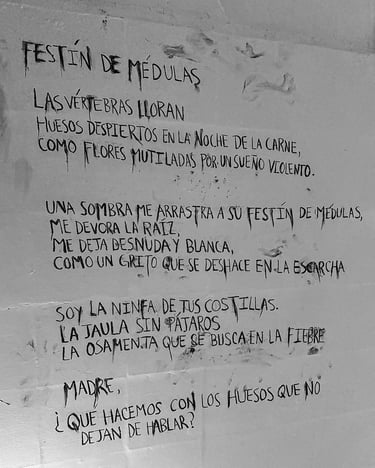 FESTÍN DE MÉDULAS
LAS VÉRTEBRAS LLORAN
HUESOS DESPIERTOS EN LA NOCHE DE LA CARNE,
COMO FLORES MUTILADAS POR UN SUEÑO VIOLENTO.
UNA SOMBRA ME ARRASTRA A SU FESTÍN DE MÉDULAS,
ME DEVORA LA RAÍZ,
ME DEJA DESNUDA Y BLANCA,
COMO UN GRITO QUE SE DESHACE EN LA ESCARCHA
SOY LA NINFA DE TUS COSTILLAS.
LA JAULA SIN PÁJAROS
LA OSAMENTA QUE SE BUSCA EN LA FIEBRE
MADRE,
¿QUE HACEMOS CON LOS HUESOS QUE NO
DEJAN DE HABLAR?